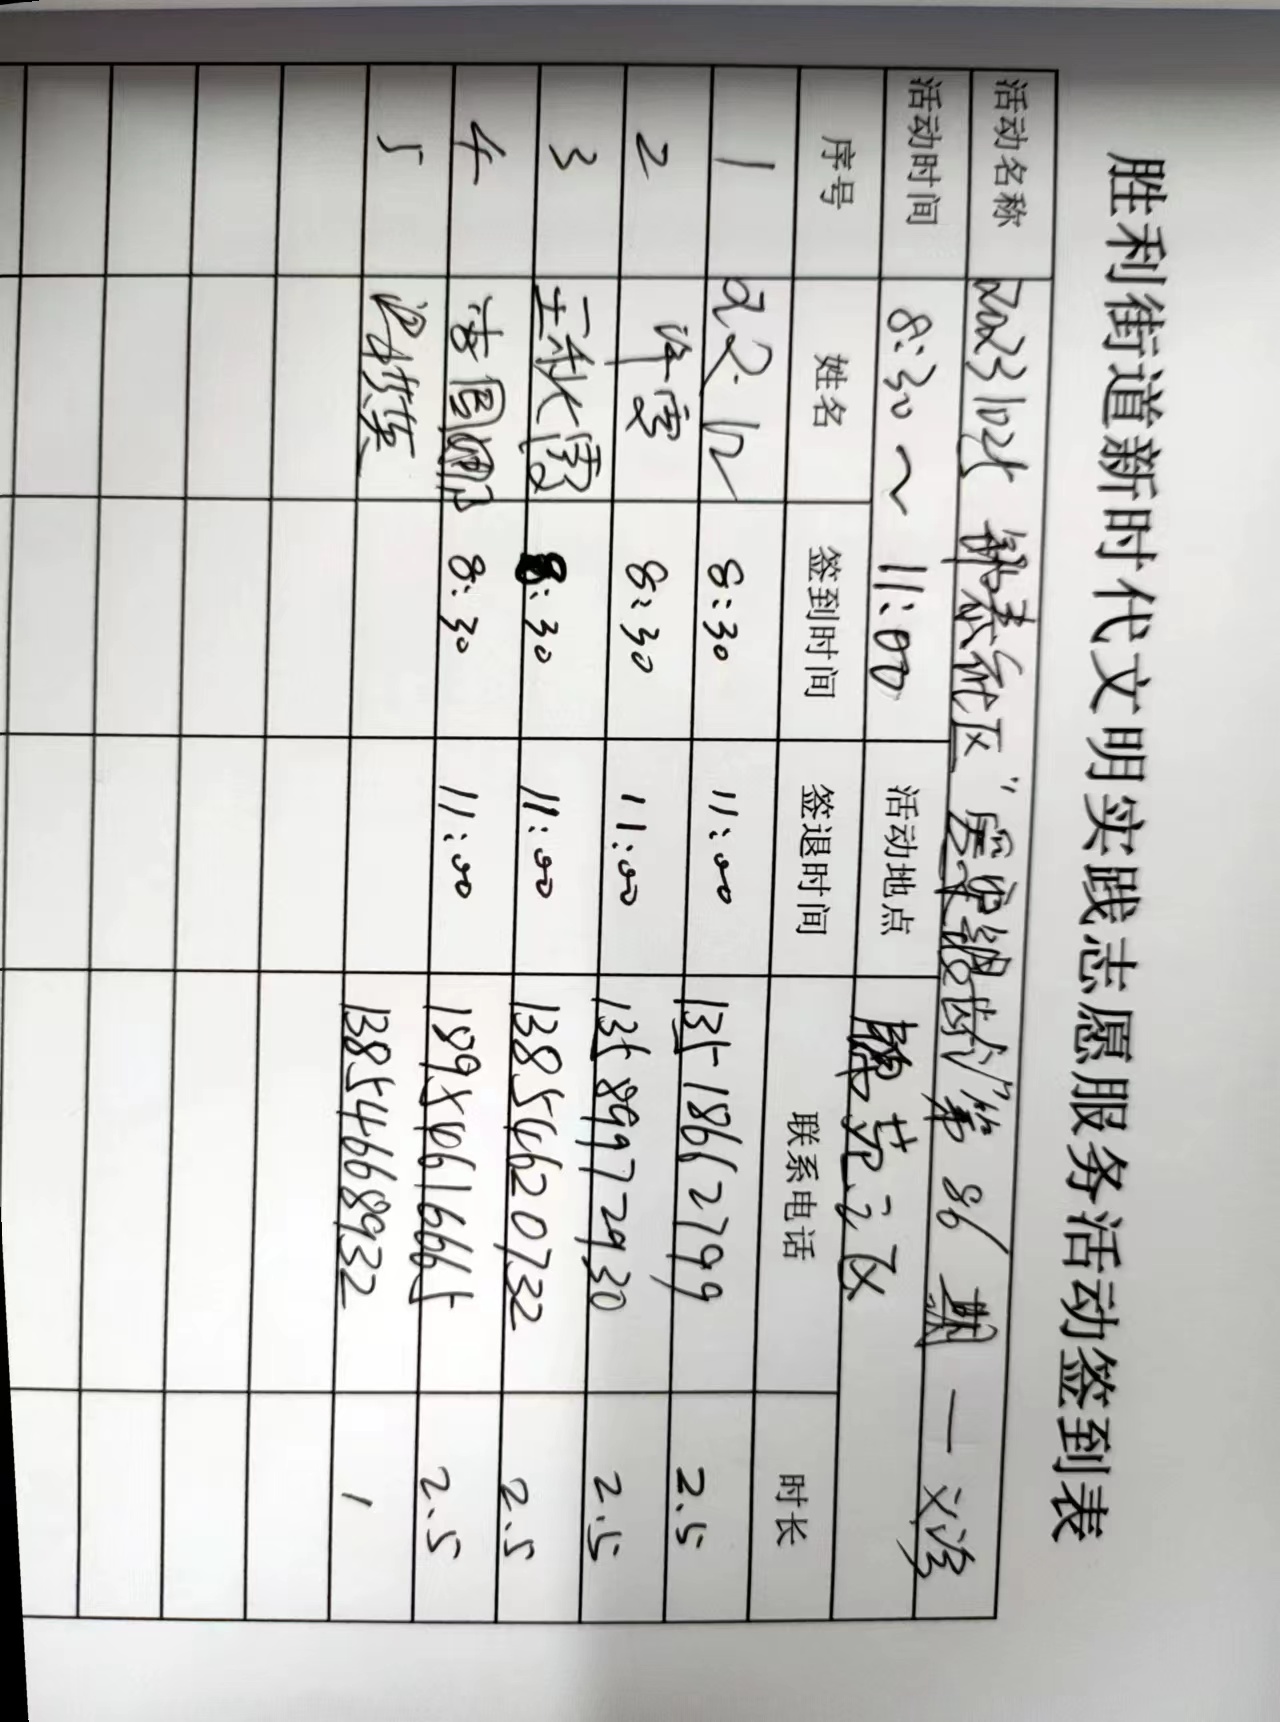 胜利街道新时代文明实践志愿服务活动签到表
活动名称 第86期一义诊
活动时间 8:30~11:00 活动地点
序号 姓名 签到时间 签退时间 联系电话 时长
1 8:30 11:00 13518662799 2.5
2 许雪 8:30 11:00 13589972930 2.5
3 王秋霞 8:30 11:00 13854620732 2.5
4 8:30 11:00 18956616665 2.5
5 13854668932 1